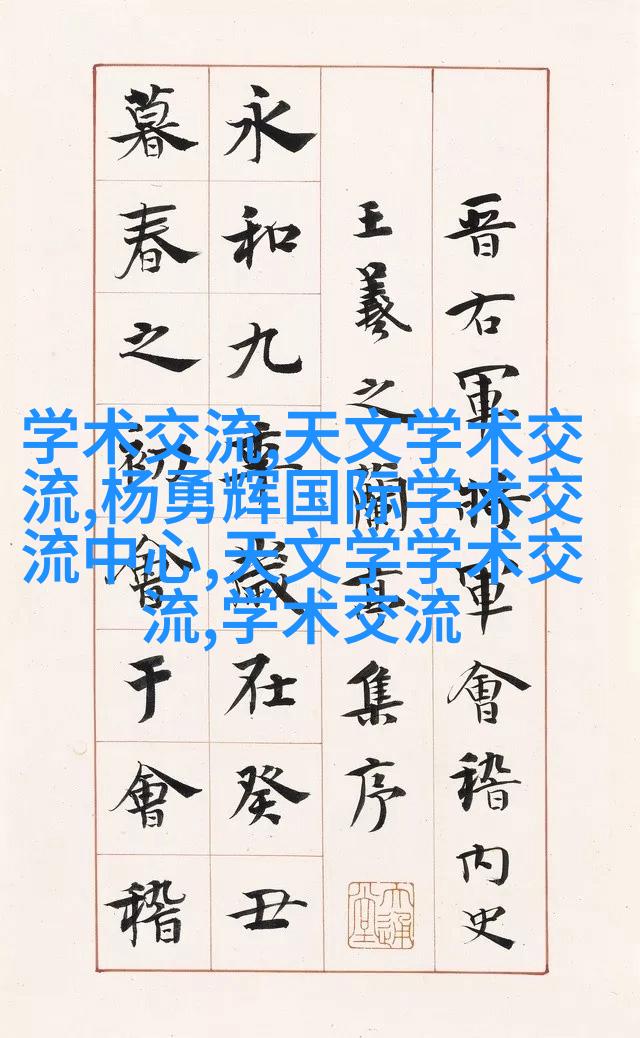 晋右軍將軍會稽内史
王羲之蘭亭集序
永和九年歲在癸丑
暮春之初會于會稽
学术交流,天文学术交
流,杨勇辉国际学术交
流中心,天文学学术交
流,学术交流